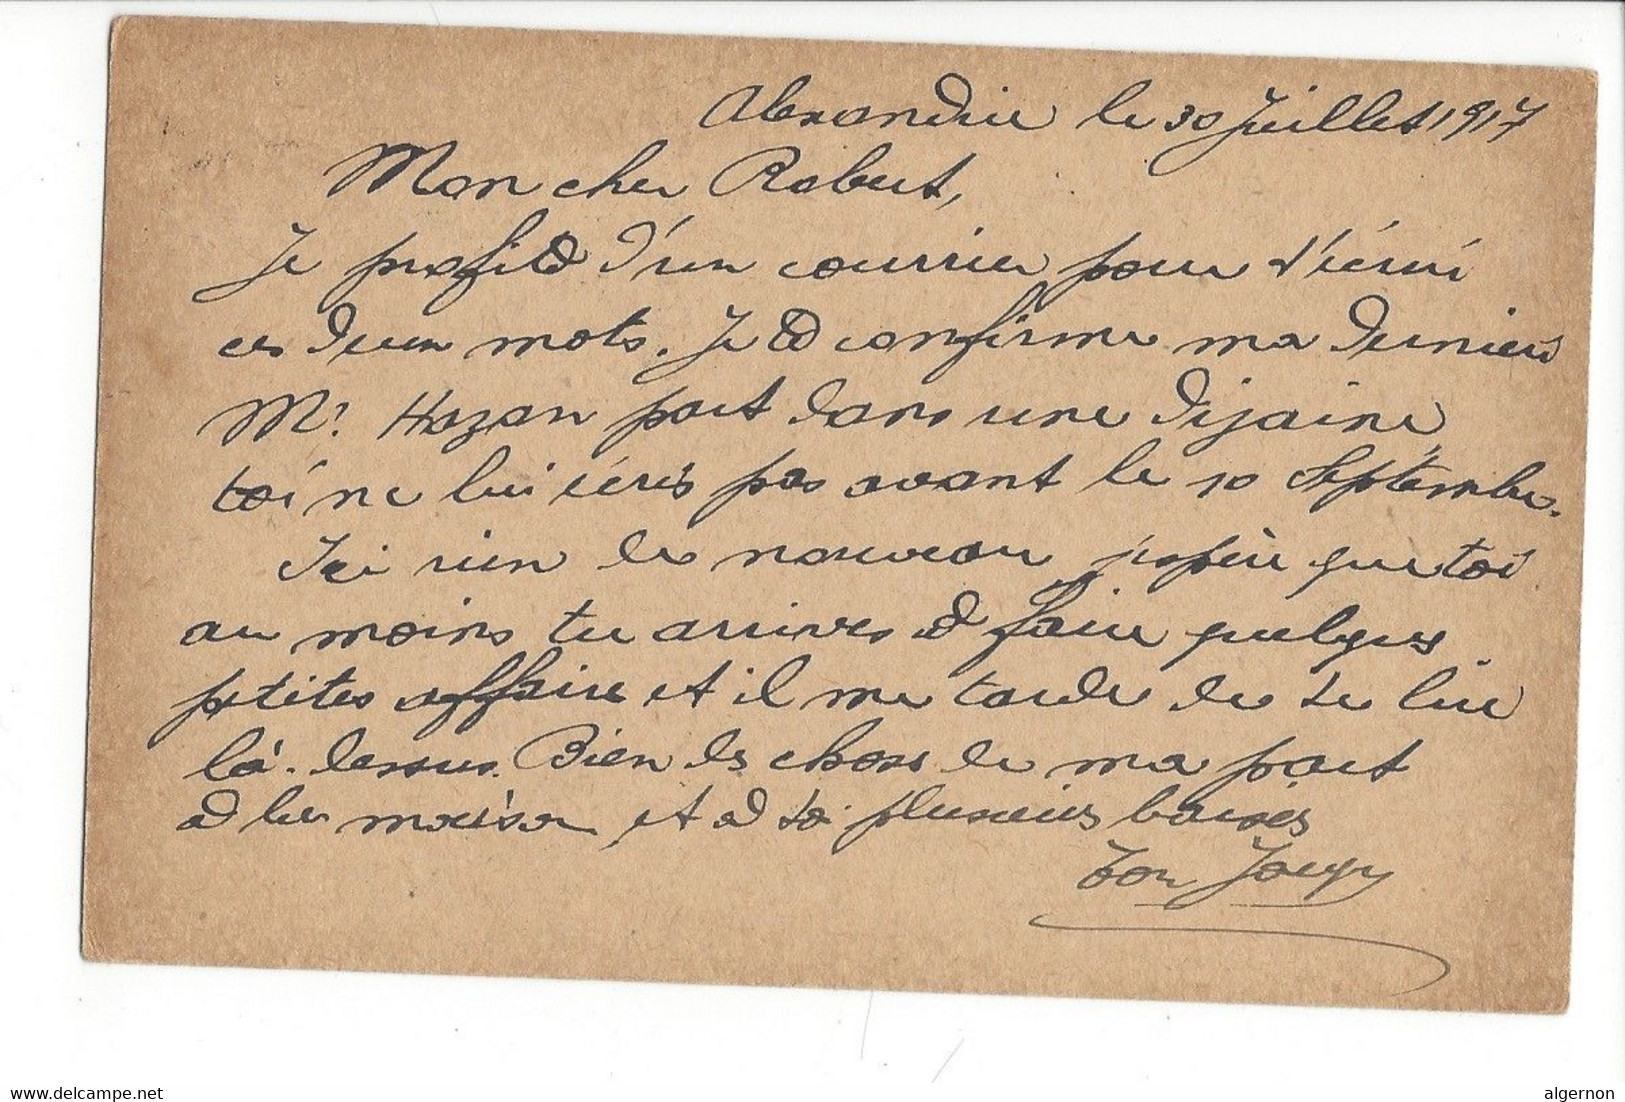 Alexandrie le 30 Juillet 1917
Mon cher Robert,
Je profite d'un courrier pour t'écrire
ces deux mots. Je te confirme ma dernière
Mr. Hazan part dans une dizaine,
toi ne lui écris pas avant le 10 Septembre.
Ici rien de nouveau j'espère que toi
au moins tu arrives à faire quelques
petites affaires et il me tarde de te lire
là-dessus. Bien des choses de ma part
à la maison, et à toi plusieurs baisers
Ton
www.delcampe.net
algernon